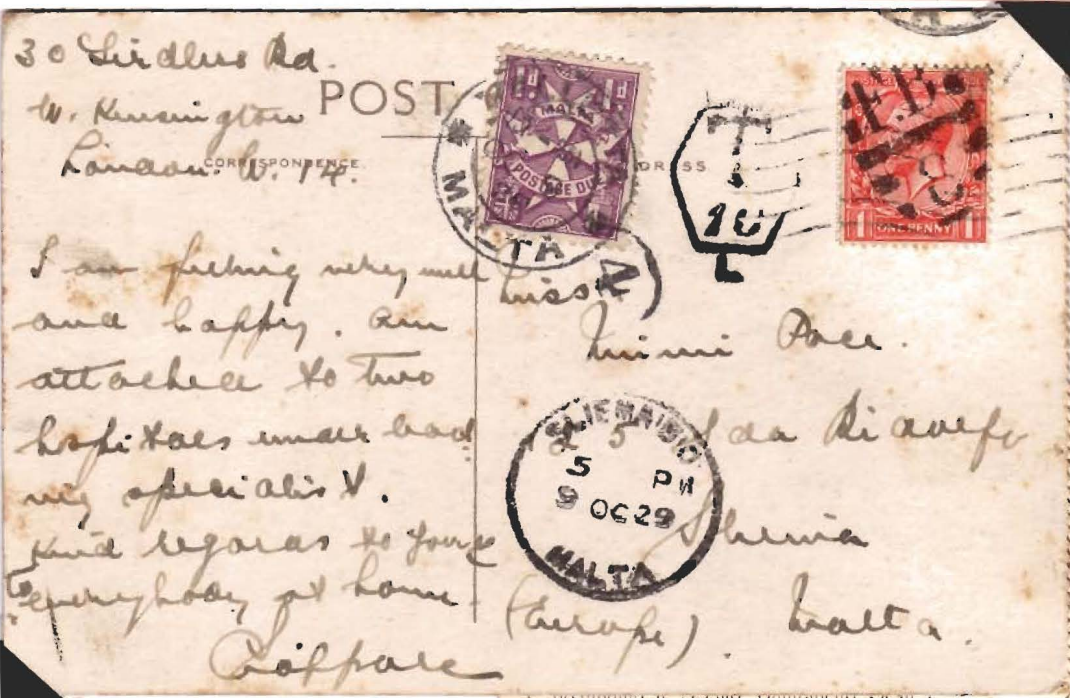 30 Girdlers Rd.
W. Kensington
London. W. 14.
POST
CORRESPONDENCE.
DRESS
I am feeling very well
and happy. Am
attached to two
hospitals under lead
ing specialist.
Kind regards to you &
to everybody at home
Miss
Mimi Pace.
25 Ida
Sliema
(Europe). Malta.
MALTA
POSTAGE DUE
MALTA
T
10
L
F.B.
ONE PENNY
1
1
SLIEMA
5 PM
9 OC 29
MALTA